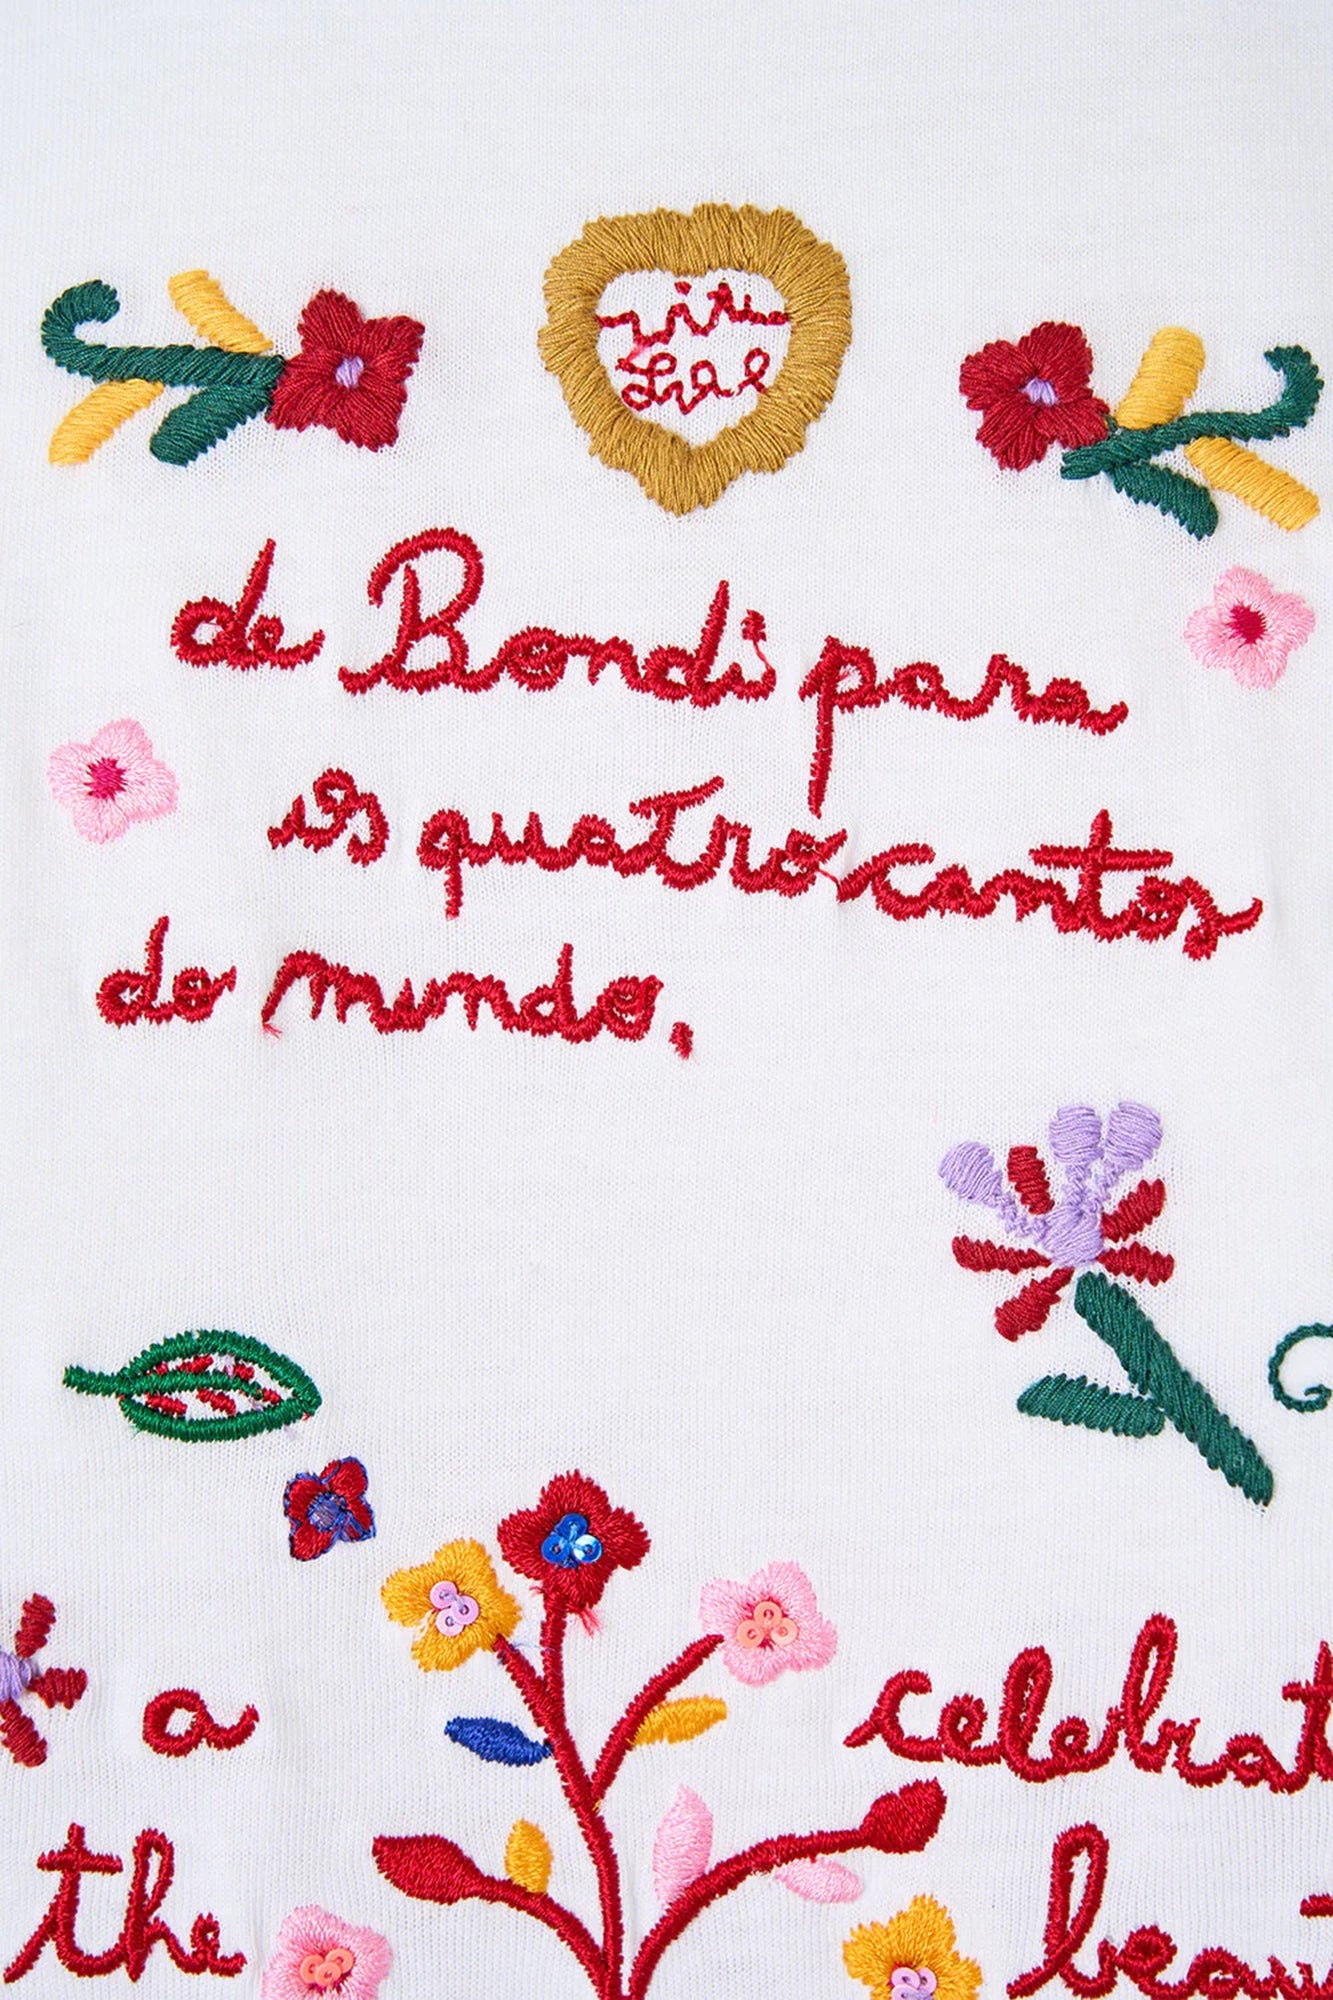 de Bondi para
os quatro cantos
do mundo.
a
celebrat
the
beau